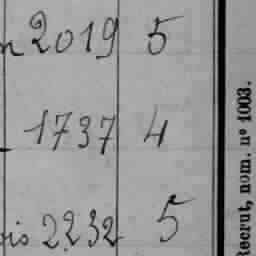 2019 5
1737 4
bis 2232 5
Recrut, nom. nº 1003.